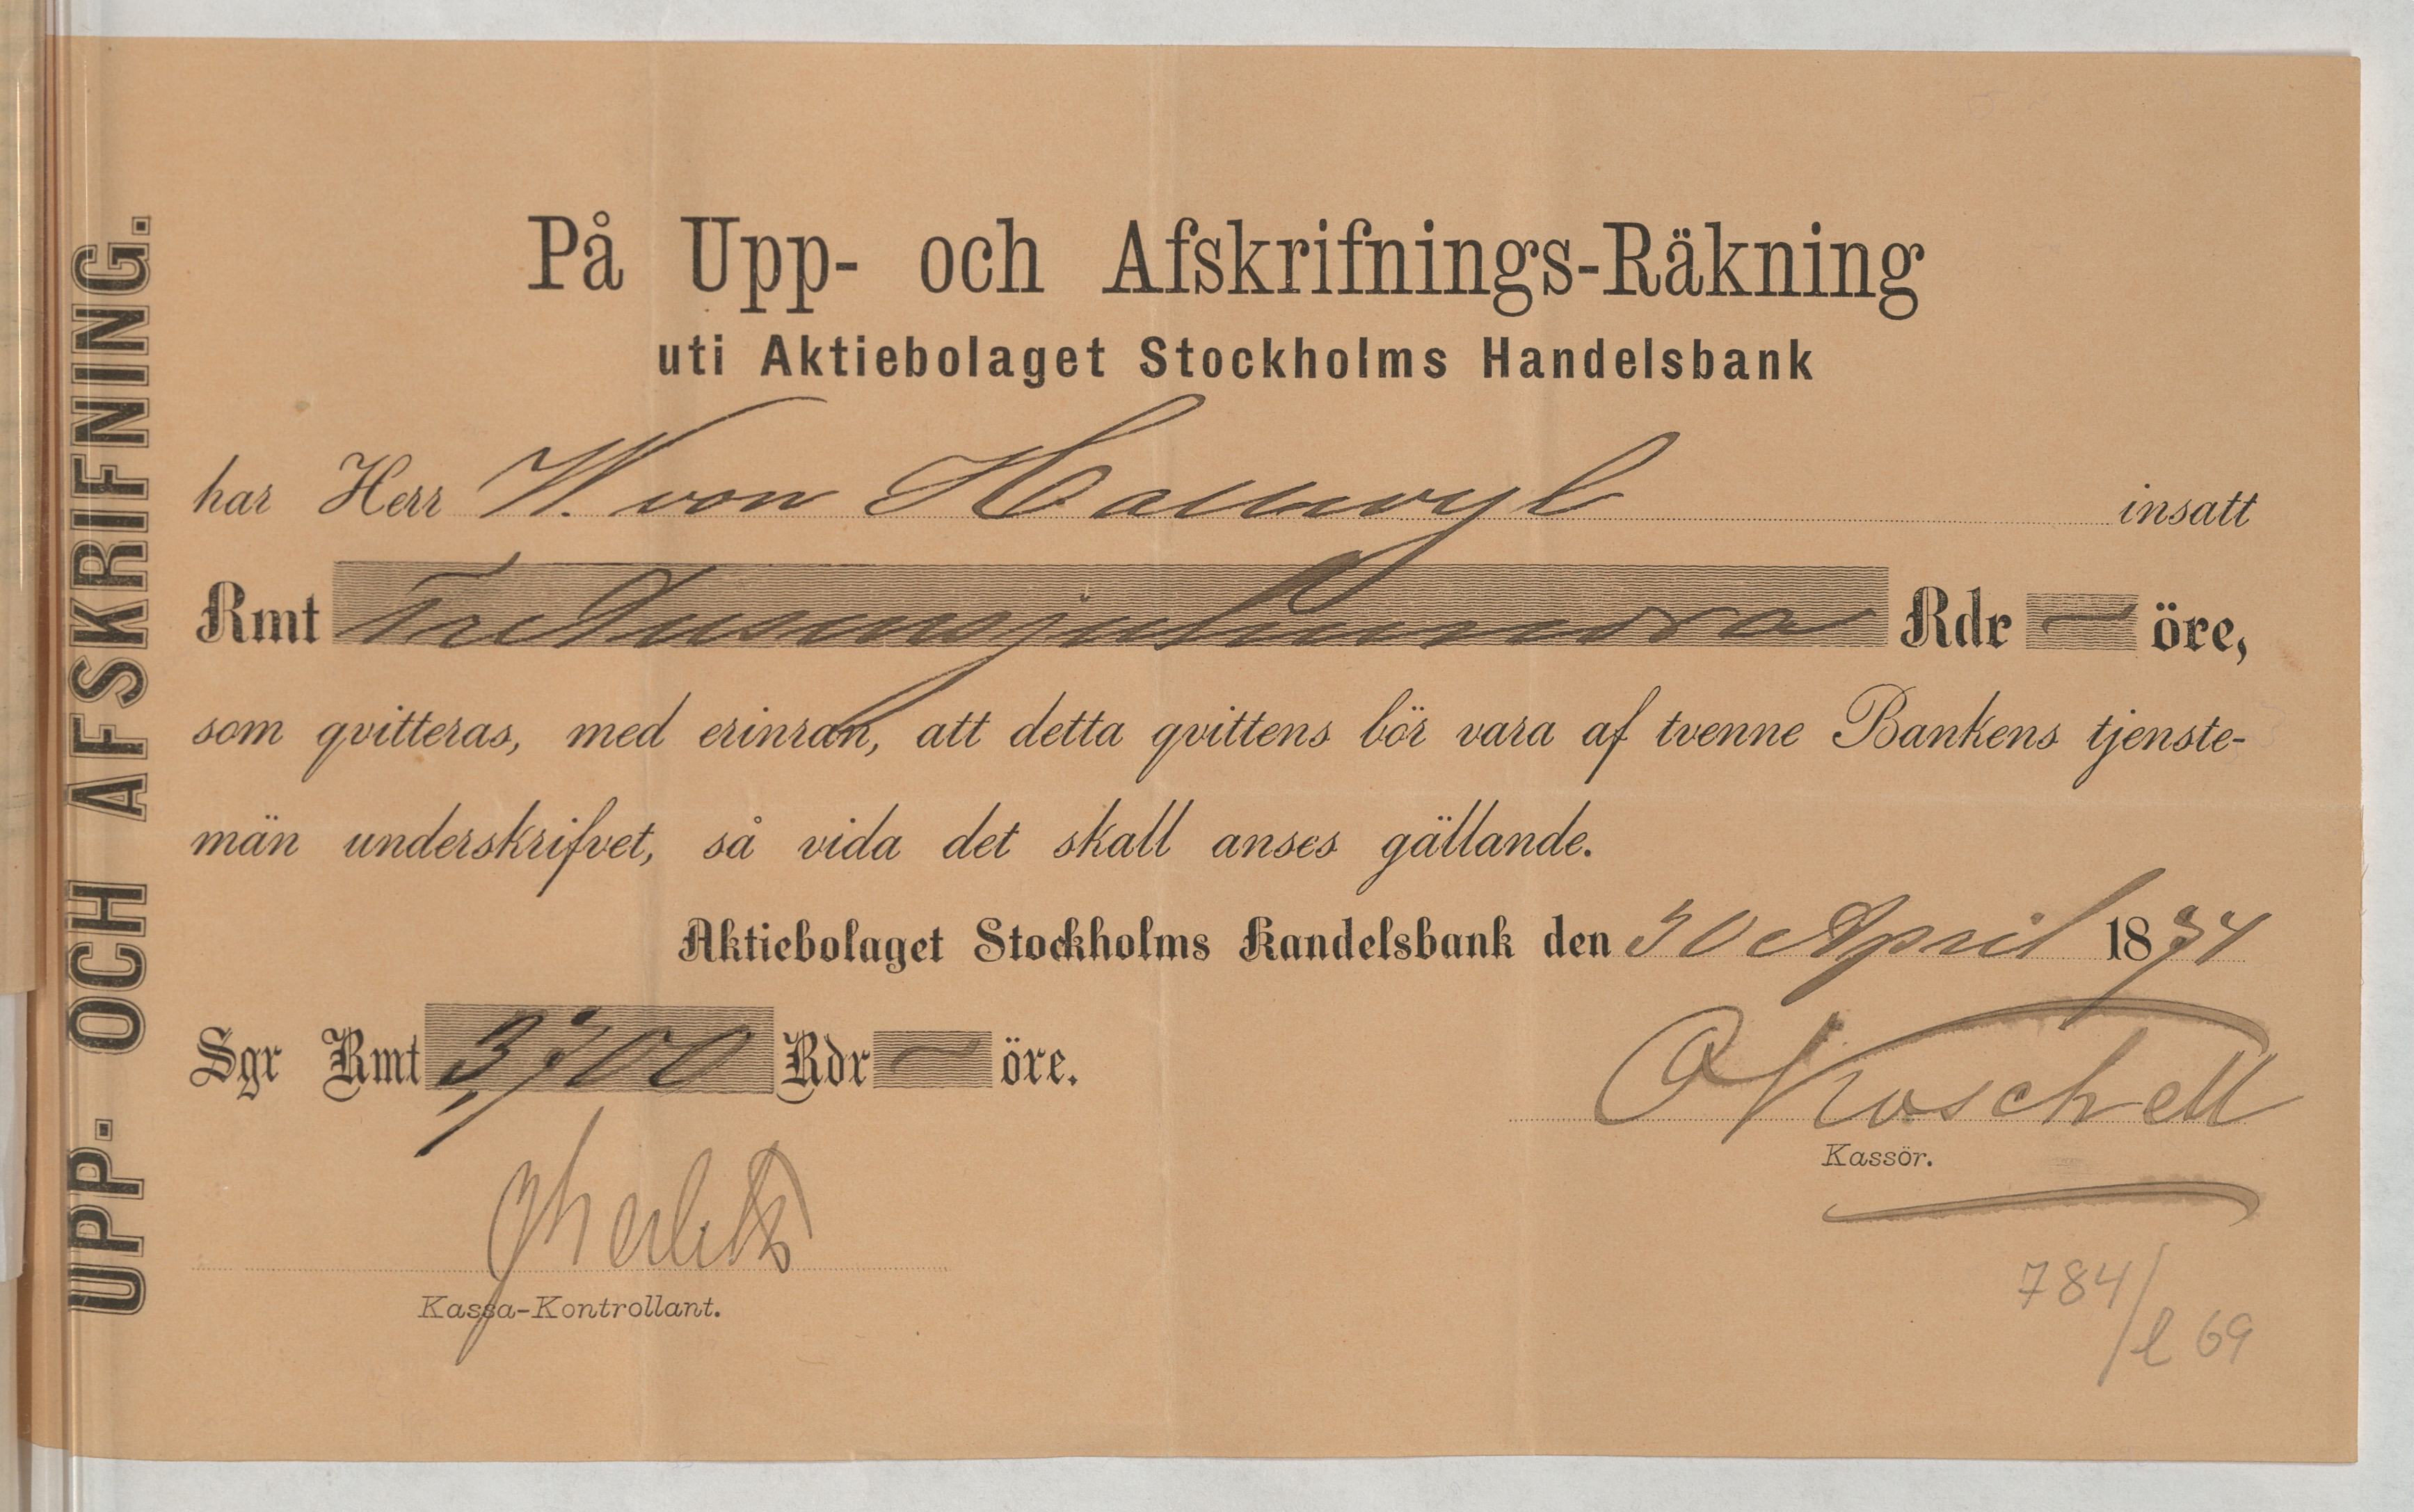 UPP- OCH AFSKRIFNING.
På Upp- och Afskrifnings-Räkning
uti Aktiebolaget Stockholms Handelsbank
har Herr W. von Hallwyl insatt
Rmt Tretusensjuhundra Rdr — öre,
som qvitteras, med erinran, att detta qvittens bör vara af tvenne Bankens tjenste-
män underskrifvet, så vida det skall anses gällande.
Aktiebolaget Stockholms Handelsbank den 30 April 1874
Sgr Rmt 3,700 Rdr — öre.
Kassör.
Kassa-Kontrollant.
784/l 69